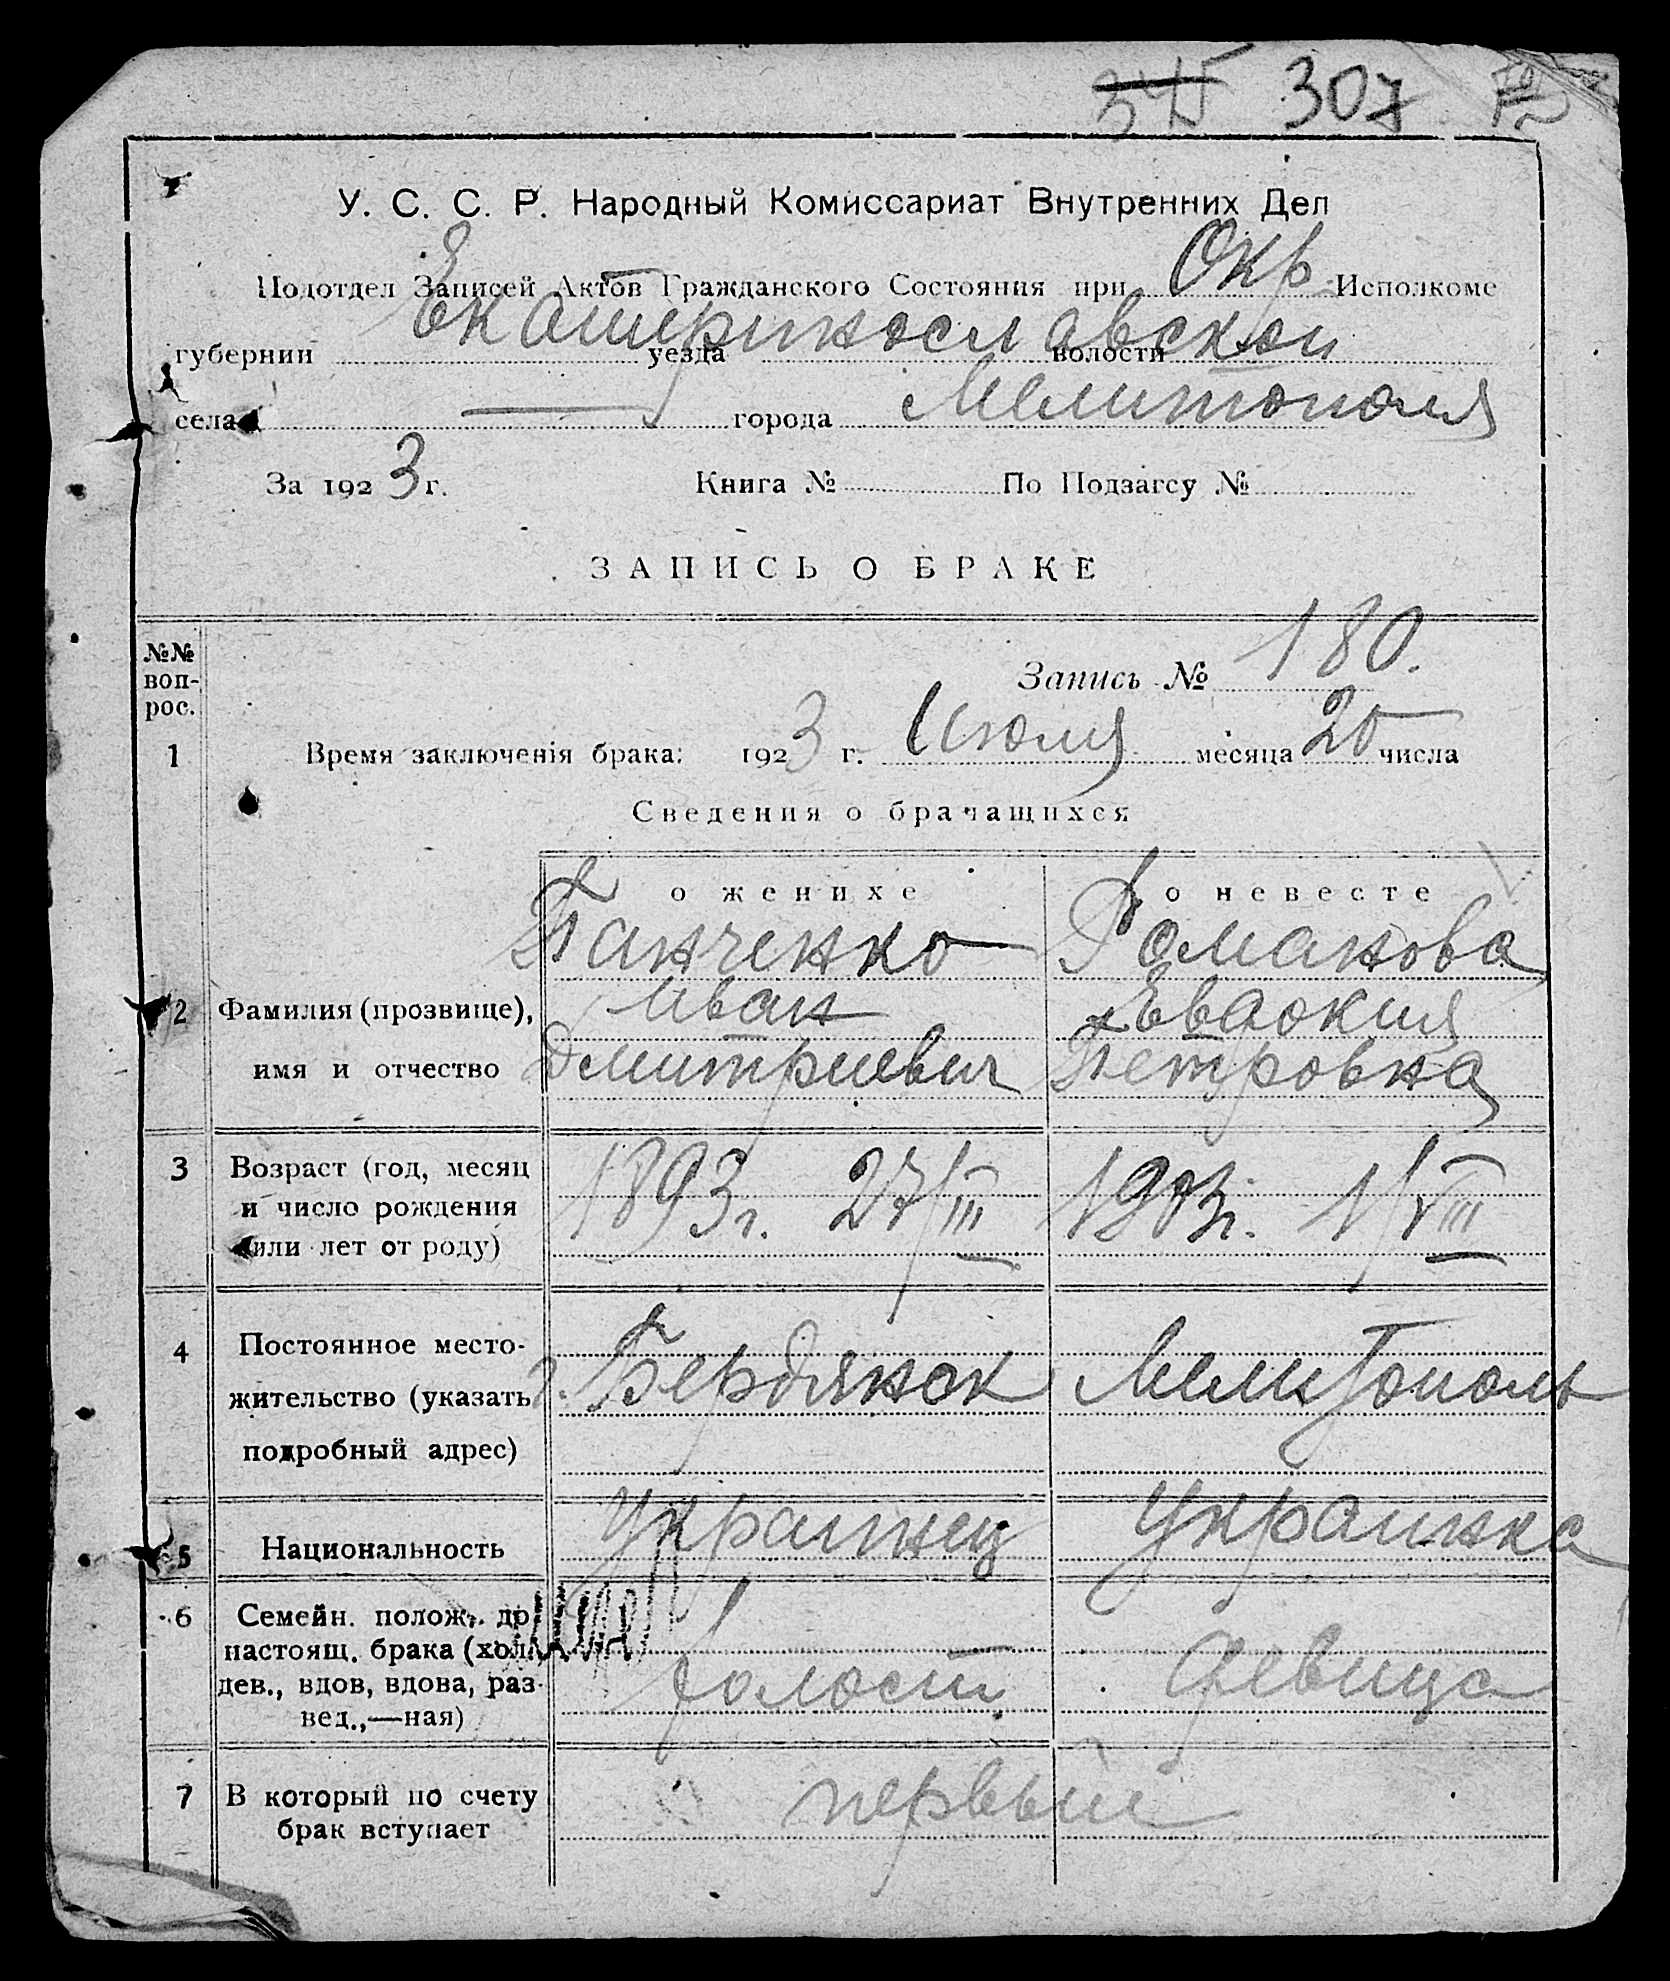 345 307
У. С. С. Р. Народный Комиссариат Внутренних Дел
Подотдел Записей Актов Гражданского Состояния при Окр Исполкоме
Екатеринославской
губернии уезда волости
села — города Мелитополя
За 1923 г. Книга № По Подзагсу №
ЗАПИСЬ О БРАКЕ
№№ воп-рос.
Запись № 180.
1 Время заключенія брака: 1923 г. Июля месяца 25 числа
Сведения о брачащихся
о женихе о невесте
Панченко Романова
2 Фамилия (прозвище), Иван Евдокия
имя и отчество Дмитриевич Петровна
3 Возраст (год, месяц
и число рождения 1893 г. 27/III 1903 г. 1/VIII
или лет от роду)
4 Постоянное место-
жительство (указать г. Бердянск Мелитополь
подробный адрес)
5 Национальность Украинец Украинка
6 Семейн. полож. до
настоящ. брака (хол.
дев., вдов, вдова, раз- холост девица
вед.,—ная)
7 В который по счету первый
брак вступает